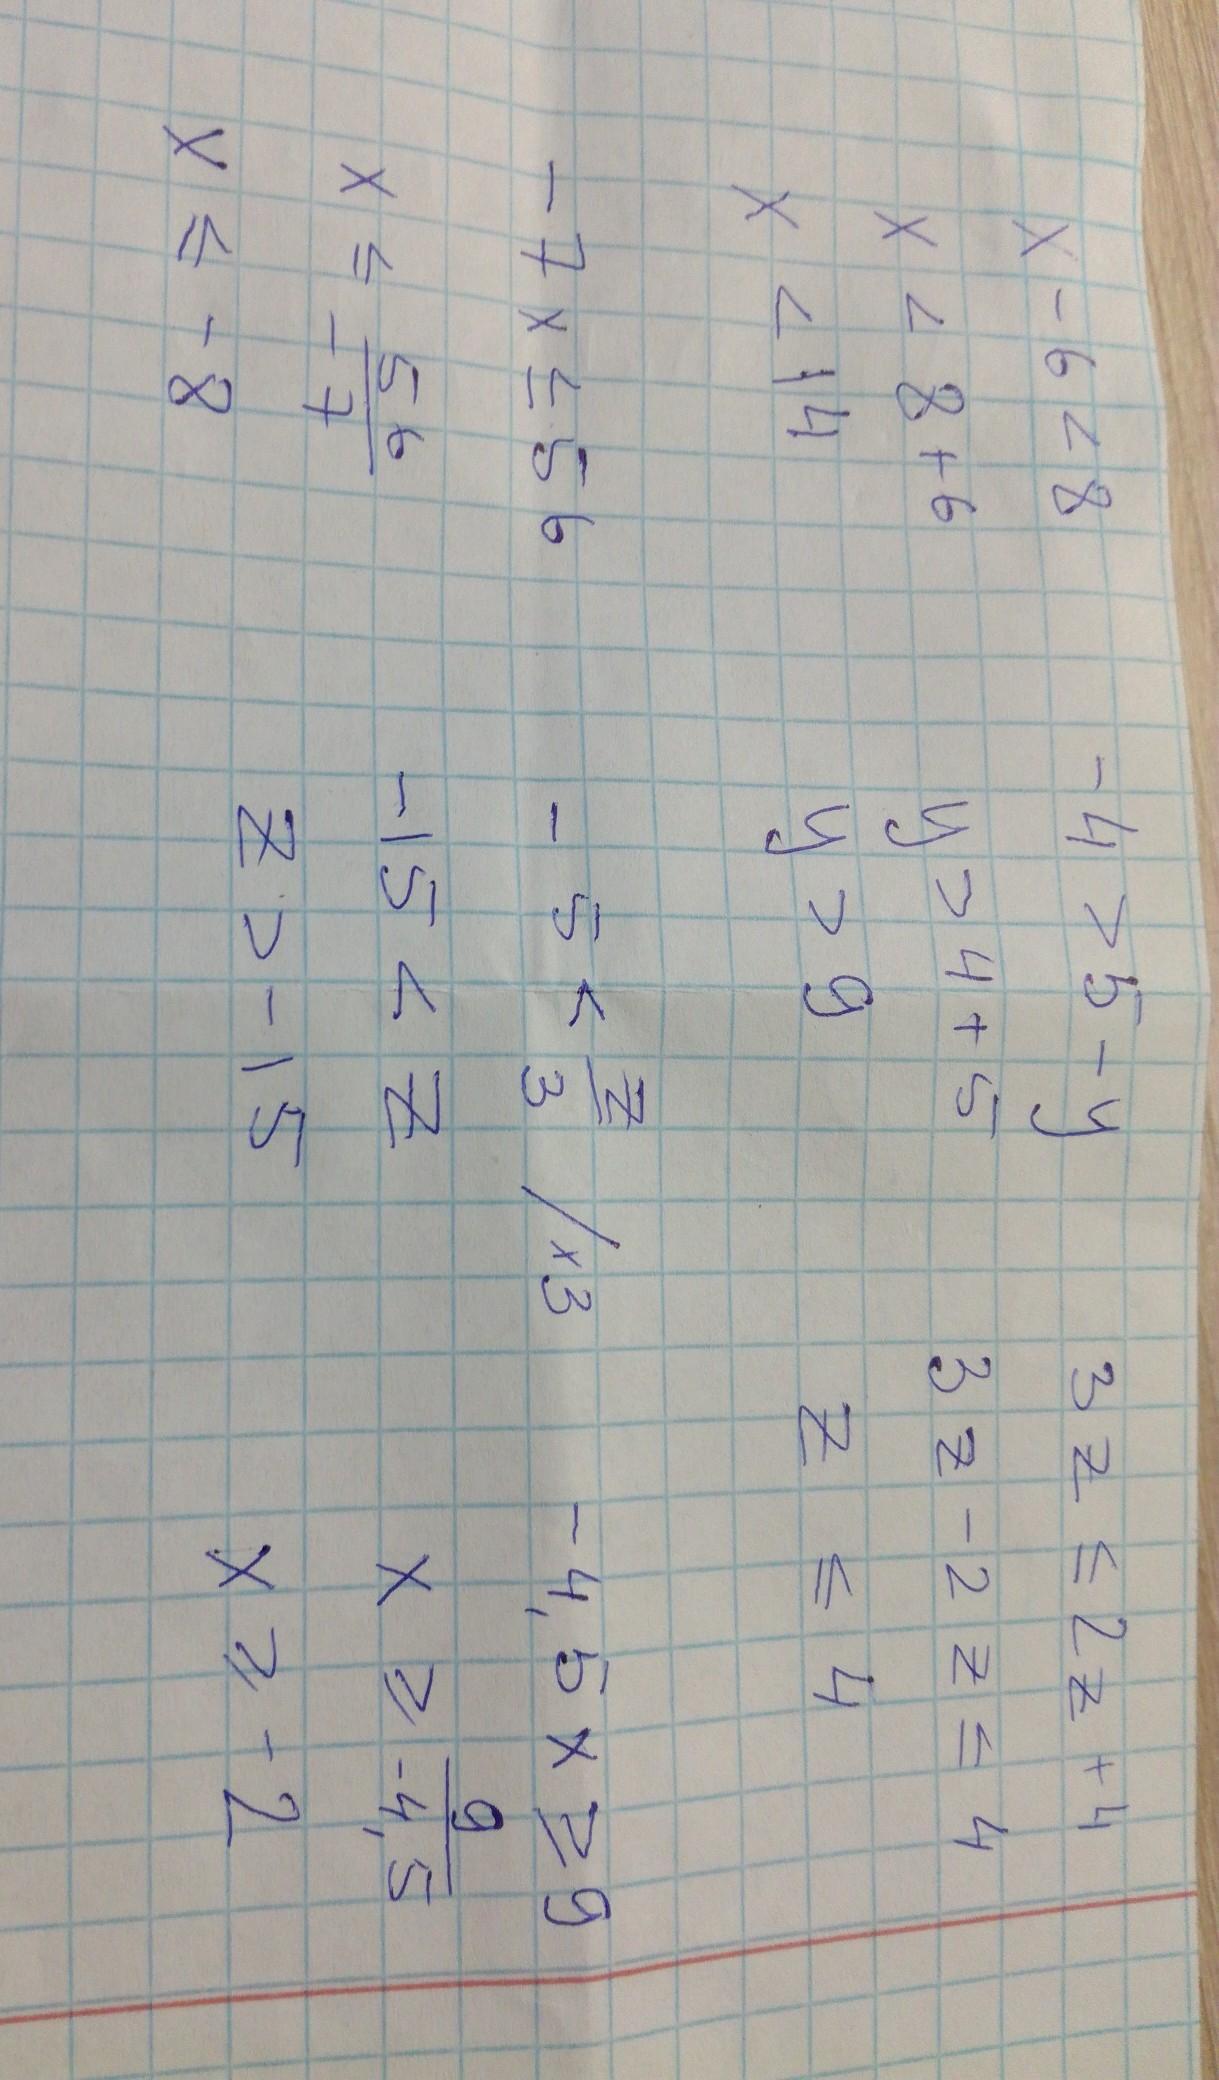 x - 6 < 8
x < 8 + 6
x < 14
-4 > 5 - y
y > 4 + 5
y > 9
3z ≤ 2z + 4
3z - 2z = 4
z ≤ 4
-7x ≤ 56
x ≤ 56/-7
x ≤ -8
-5 < z/3 /x3
-15 < z
z > -15
-4,5x ≥ 9
x ≥ 9/-4,5
x ≥ -2